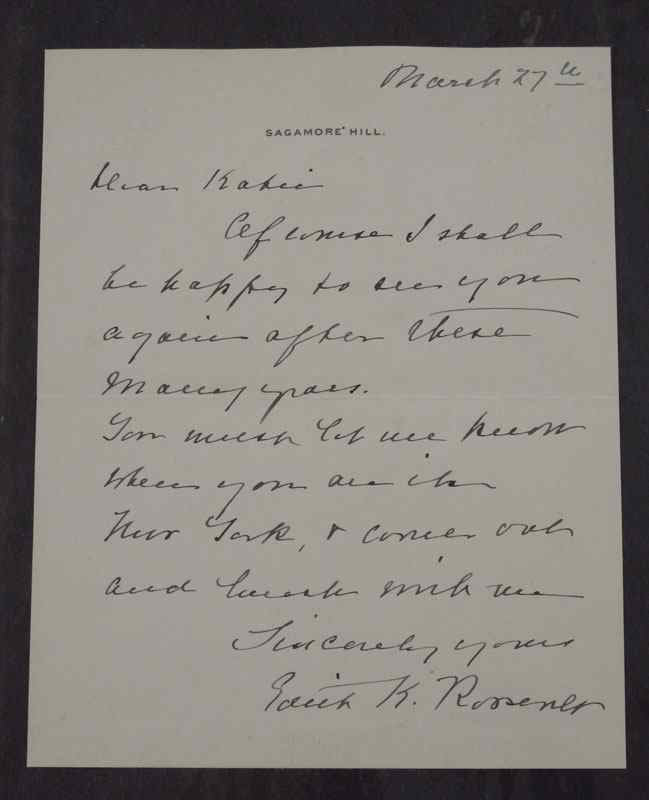 March 27th
SAGAMORE HILL.
Dear Katie
Of course I shall
be happy to see you
again after these
many years.
You must let me know
when you are in
New York, & come out
and lunch with me
Sincerely yours
Edith K. Roosevelt